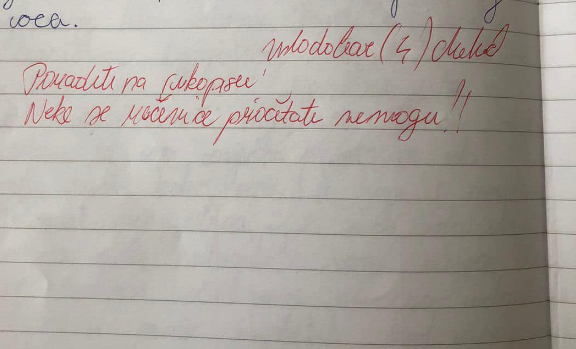 oca.
vrlo dobar (4)
Poradite na rukopisu!
Neke se rečenice pročitati ne mogu!!